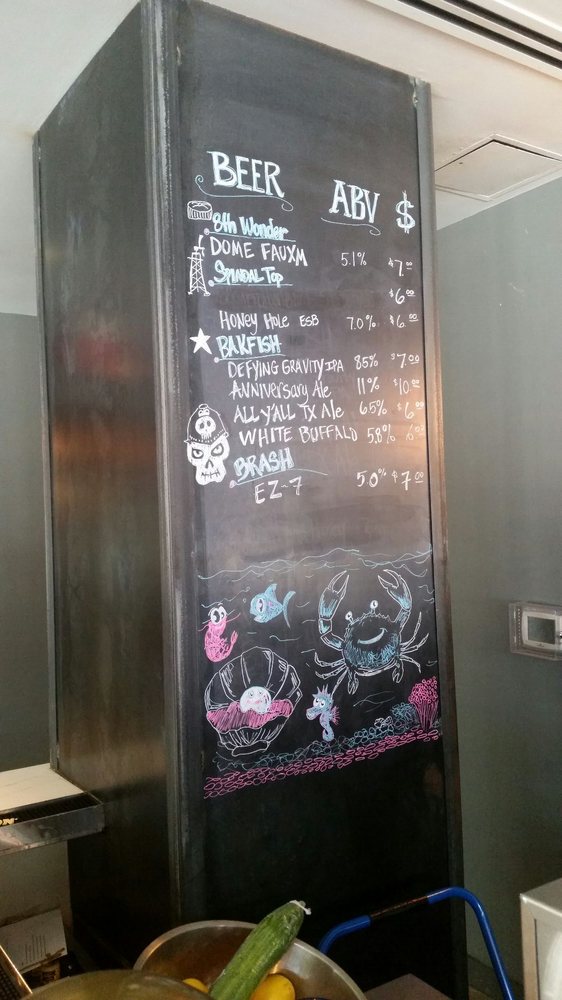 BEER ABV $
8th Wonder
DOME FAUXM 5.1% $7.00
SPINDAL TOP
$6.00
HONEY HOLE ESB 7.0% $6.00
BAKFISH
DEFYING GRAVITY IPA 85% $7.00
ANNIVERSARY Ale 11% $10.00
ALL Y'ALL TX Ale 65% $6.00
WHITE BUFFALO 5.8% 6.00
BRASH
EZ-7 5.0% $7.00